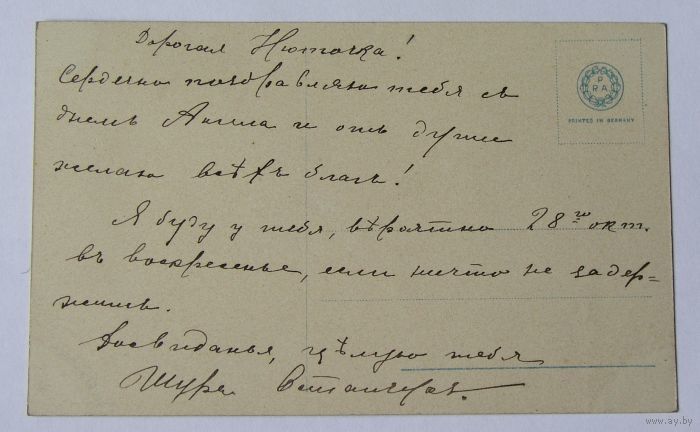 Дорогая Нюточка!
P
RA
PRINTED IN GERMANY
Сердечно поздравляю тебя съ
днемъ Ангела и отъ души
желаю всѣхъ благъ!
Я буду у тебя, вѣроятно 28го окт.
въ воскресенье, если ничто не задер=
житъ.
Досвиданья, цѣлую тебя
Шура
www.ay.by